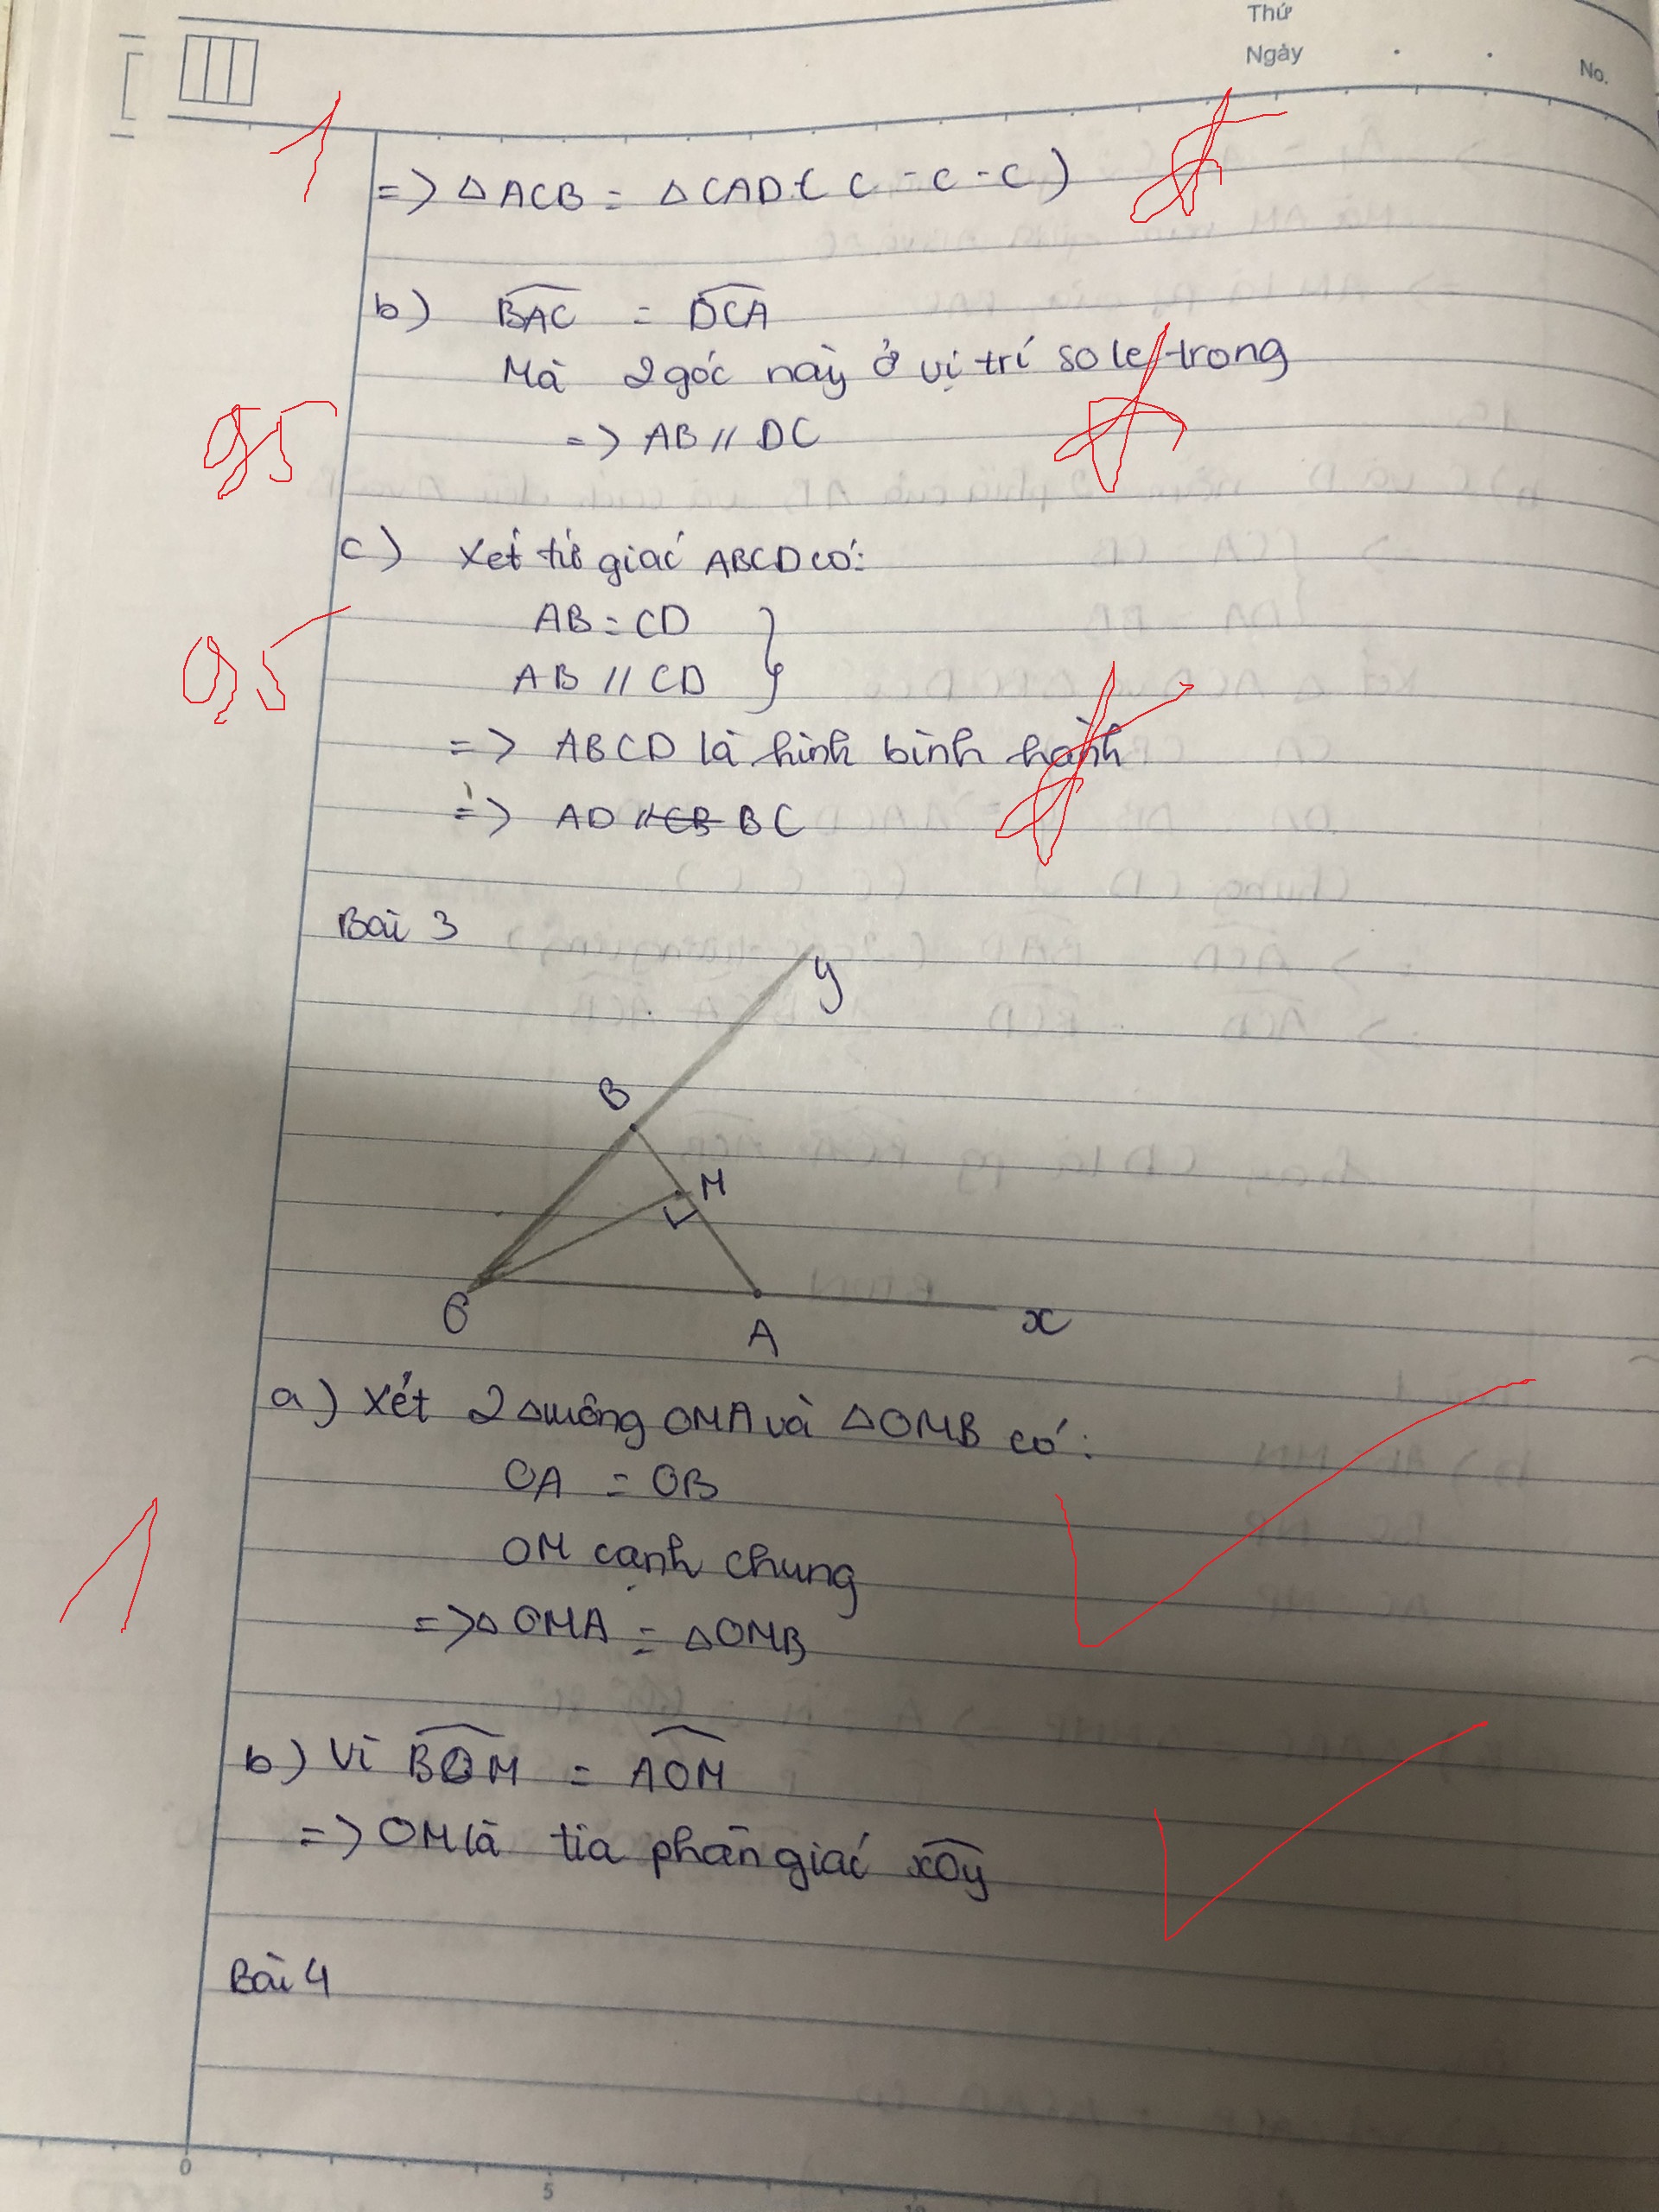 Thứ
Ngày
No.
1
=> △ACB = △CAD ( C - C - C )
b) BAC = DCA
Mà 2 góc này ở vị trí so le trong
=> AB // DC
0,5
c) Xét tứ giác ABCD có:
AB = CD
AB // CD }
0,5
=> ABCD là hình bình hành
=> AD // CB BC
Bài 3
y
B
M
O
A
x
a) Xét 2 △vuông OMA và △OMB có:
OA = OB
OM cạnh chung
1
=> △OMA = △OMB
b) Vì BOM = AOM
=> OM là tia phân giác xOy
Bài 4
0
5
10